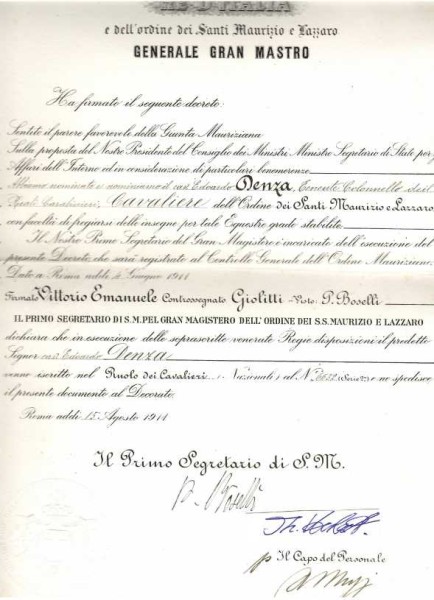 RE D'ITALIA
e dell'ordine dei Santi Maurizio e Lazzaro
GENERALE GRAN MASTRO
Ha firmato il seguente decreto:
Sentito il parere favorevole della Giunta Mauriziana
Sulla proposta del Nostro Presidente del Consiglio dei Ministri Ministro Segretario di Stato per gli
Affari dell'Interno ed in considerazione di particolari benemerenze
Abbiamo nominato e nominiamo il cav. Edoardo Denza, Tenente Colonnello dei
Reali Carabinieri, Cavaliere dell'Ordine dei Santi Maurizio e Lazzaro
con facoltà di fregiarsi delle insegne per tale Equestre grado stabilite.
Il Nostro Primo Segretario del Gran Magistero è incaricato dell'esecuzione del
presente Decreto, che sarà registrato al Controllo Generale dell'Ordine Mauriziano.
Dato a Roma addì Giugno 1911
Firmato Vittorio Emanuele Controssegnato Giolitti Visto: P. Boselli
IL PRIMO SEGRETARIO DI S. M. PEL GRAN MAGISTERO DELL'ORDINE DEI S.S. MAURIZIO E LAZZARO
dichiara che in esecuzione delle soprascritte venerate Regie disposizioni il predetto
Signor cav. Edoardo Denza
venne iscritto nel Ruolo dei Cavalieri (Nazionali) al N° e ne spedisce
il presente documento al Decorato.
Roma addì 15 Agosto 1911
Il Primo Segretario di S. M.
P. Boselli
p Il Capo del Personale